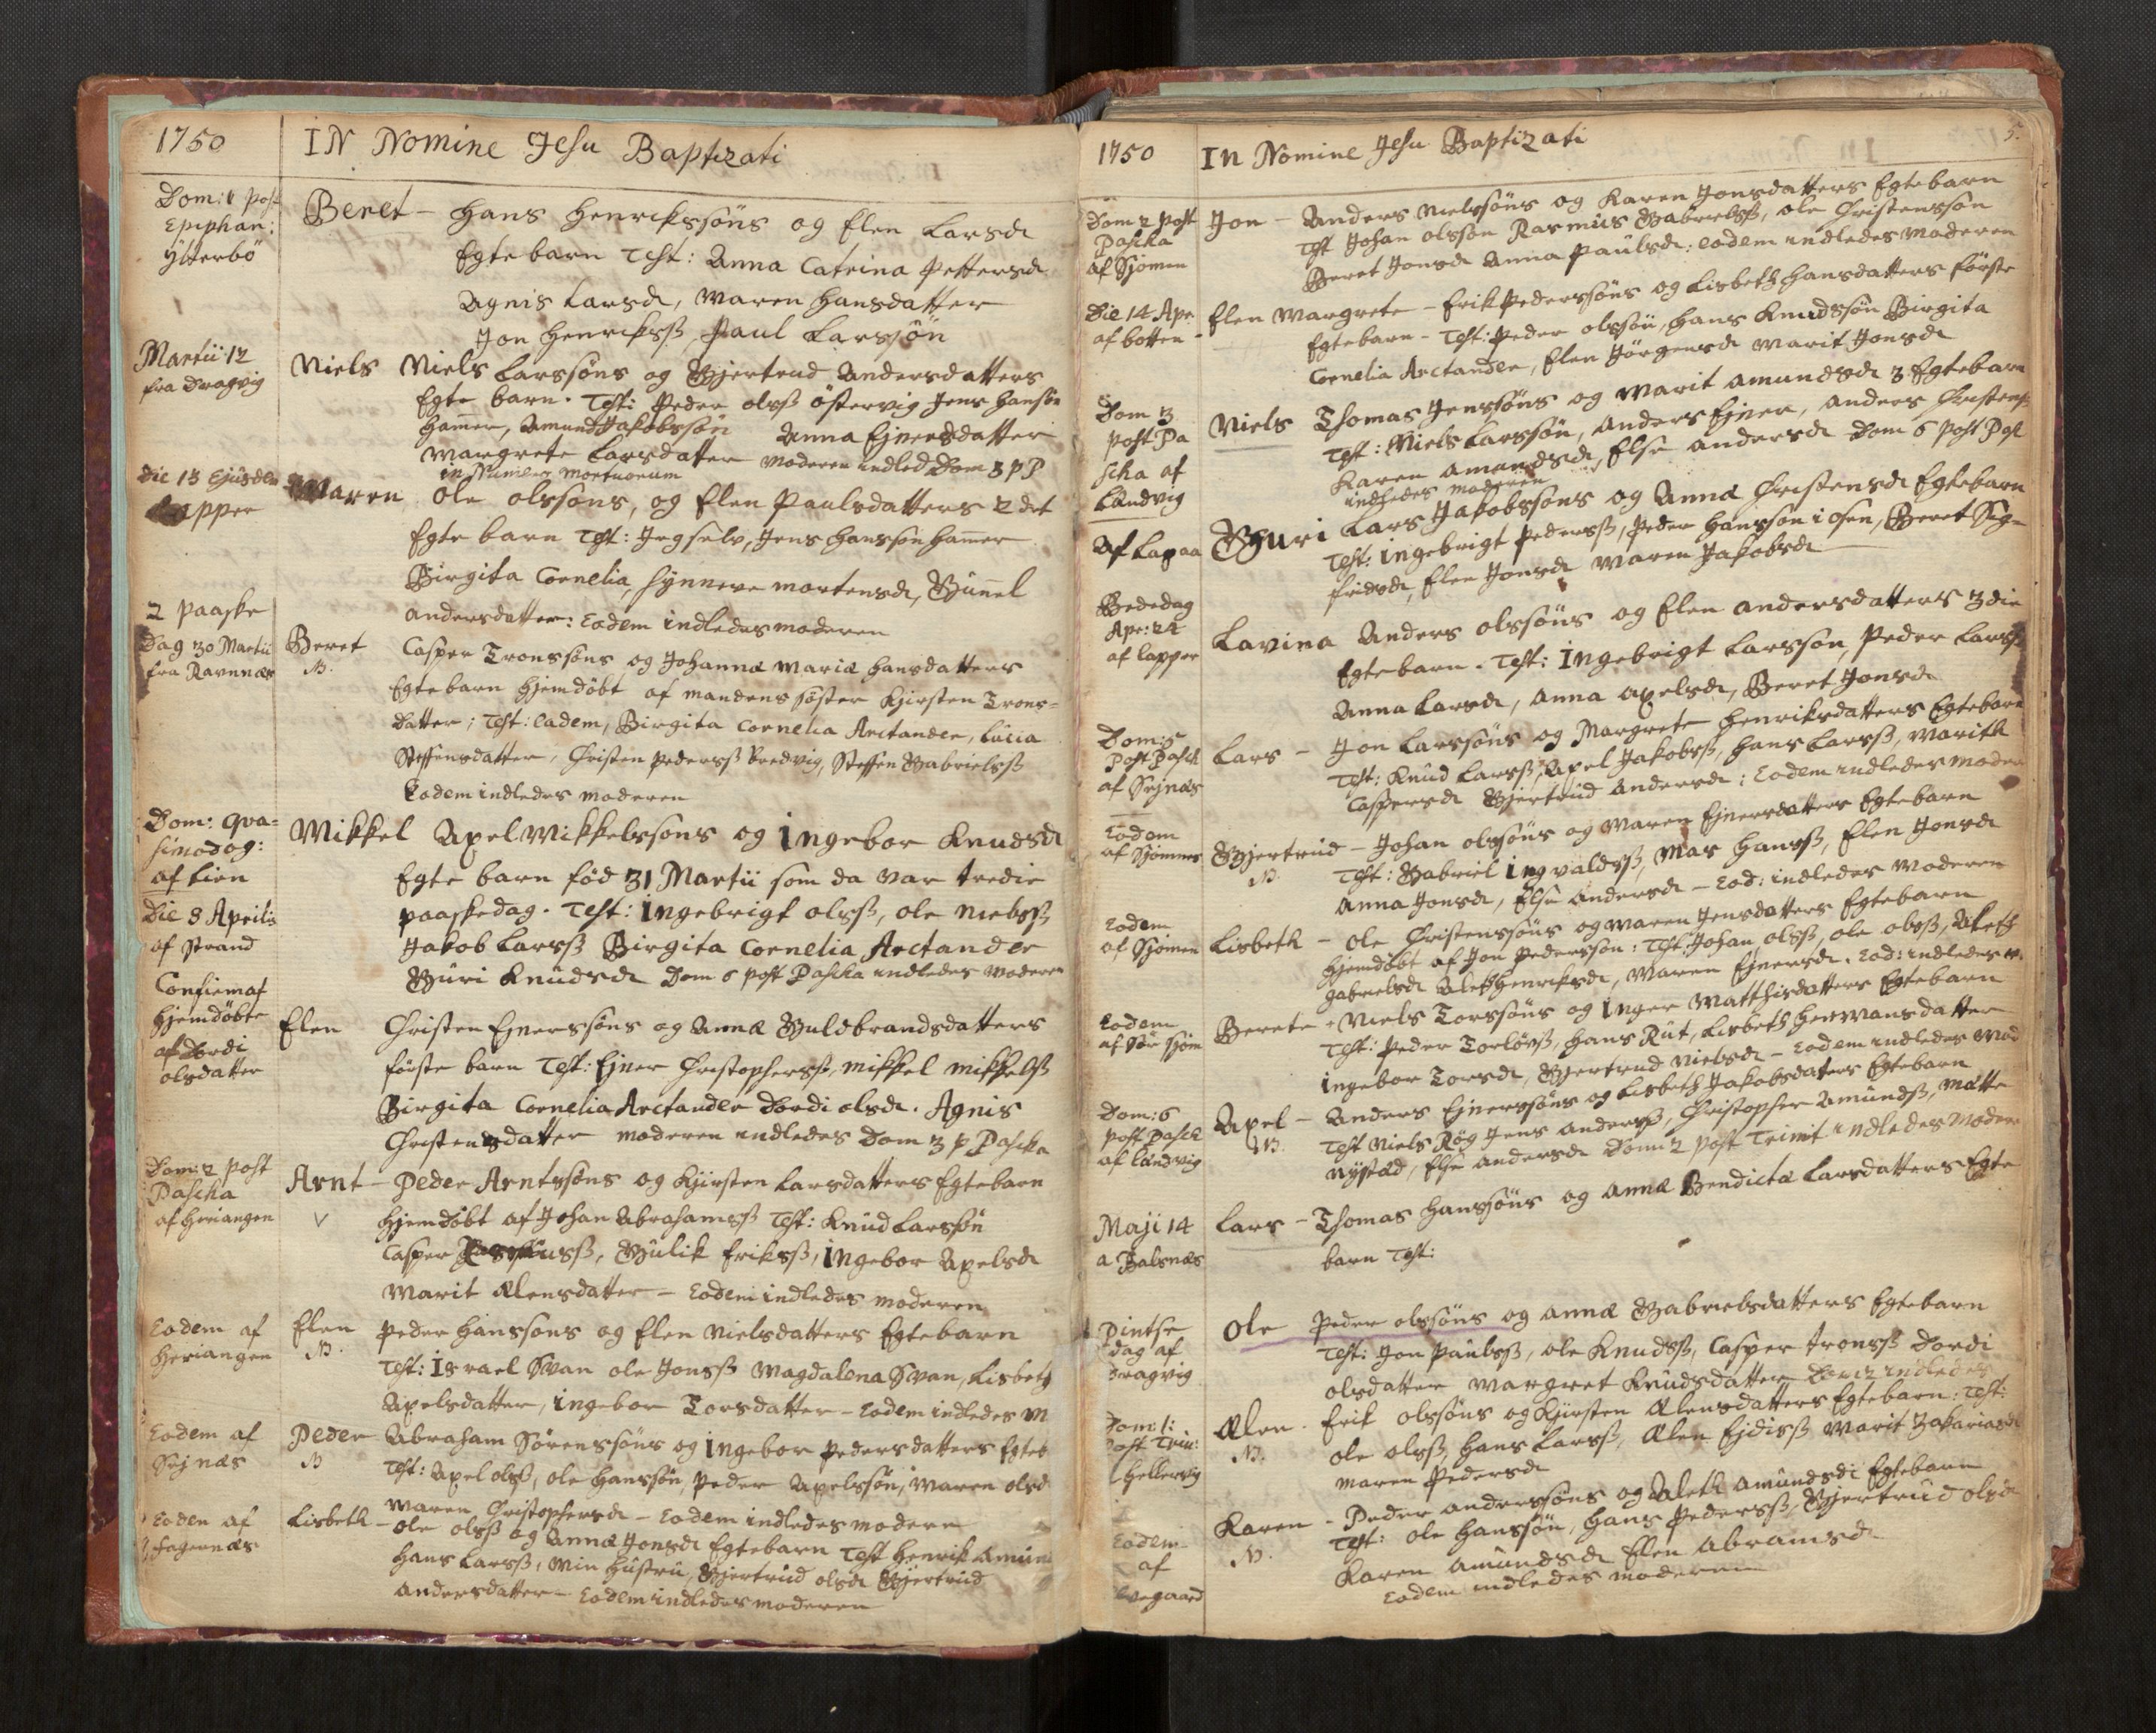 1750
IN Nomine Jesu Baptizati
Dom: 1 post
Epiphan:
Ytterbö
Beret - Hans Henrikssöns og Elen Larsd
Egte barn Test: Anna Catrina Pettersd
Agnis Larsd, Maren Hansdatter
Jon Henrikss, Paul Larssön
Martii 12
fra Dragvig
Niels Niels Larssöns og Gjertrud Andersdatters
Egte barn. Test: Peder olss östervig Jens Hansön
Hamer, Amund Jakobssön Anna Ejnersdatter
Margrete Larsdatter Moderen indled Dom 3 p P
in Numero mortuorum
die 13 Ejusdem
Lapper
Maren Ole olssons, og Elen Paulsdatters 2 det
Egte barn Test: Jegselv, Jens Hansson Hamer
Birgita Cornelia, Synneve Mortensd, Gunnel
Andersdatter: Eodem indledes moderen
2 Paaske
Dag 30 Martii
fra Ravnnæs
Beret
N.
Casper Tronssöns og Johannæ Mariæ Hansdatters
Egtebarn hjemdöbt af mandens söster Kjirsten Trons=
datter; Test: Eadem, Birgita Cornelia Arctander, Lucia
Steffensdatter, Christen Pederss Bredvig, Steffen Gabrielss
Eodem indledes moderen
Dom: Qva=
simodog:
af Lien
Mikkel Axel Mikkelssons og Ingebor Knudsd
Egte barn föd 31 Martii som da var tredie
paaskedag. Test: Ingebrigt olss, ole Nielss
Jakob Larss Birgita Cornelia Arctander
Guri Knudsd Dom 6 post Pascha indledes Moderen
Die 8 Aprilis
af Strand
Confirmat
hjemdöbte
af Dordi
olsdatter
Elen Christen Ejnerssöns og Annæ Guldbrandsdatters
förste barn Test: Ejner Christopherss, Mikkel Mikkelss
Birgita Cornelia Arctander Dordi olsd. Agnis
Christensdatter moderen indledes Dom 3 p Pascha
Dom: 2 post
Pascha
af Heriangen
Arnt - Peder Arntssöns og Kjirsten Larsdatters Egtebarn
hjemdöbt af Johan Abrahamss Test: Knud Larssön
Casper Rasmuss, Gulik Erikss, Ingebor Axelsd
Marit Alensdatter - Eodem indledes moderen
Eodem af
Heriangen
Elen
N.
Peder Hanssons og Elen Nielsdatters Egtebarn
Test: Israel Svan ole Jonss Magdalena Svan, Lisbeth
Axelsdatter, Ingebor Torsdatter - Eodem indledes M
Eodem af
Sejnæs
Peder
N
Abraham Sörenssöns og Ingebor Pedersdatters Egteb
Test: Axel olss, ole Hanssön, Peder Axelssön, Maren olsd
Maren Christophersd - Eodem indledes modern
Eodem af
Fagernæs
Lisbeth - ole olss og Annæ Jonsd Egtebarn Test Henrik Amun
Hans Larss, Min Hustru, Gjertrud olsd Gjertrud
Andersdatter - Eodem indledes moderen
1750
5.
In Nomine Jesu Baptizati
Dom 2 post
Pascha
af Sjomen
Jon - Anders Nielssöns og Karen Jonsdatters Egtebarn
Test Johan olsson Rasmus Gabrielss, ole Christenssön
Beret Jonsd Anna Paulsd: eodem indledes Moderen
Die 14 Apr
af botten -
Elen Margrete - Erik Pederssöns og Lisbeth Hansdatters förste
Egtebarn - Test: Peder olssön, Hans Knudssön Birgita
Cornelia Arctander, Elen Jörgensd Marit Jonsd
Dom 3
post Pa
scha af
Landvig
Niels Thomas Jenssöns og Marit Amundsd 3 Egtebarn
Test: Niels Larssön, Anders Ejner, Anders Christens
Karen Amundsd, Else Andersd Dom 6 post Pas
indledes moderen
Af Lapaa
Guri Lars Jakobssöns og Annæ Christensd Egtebarn
Test: Ingebrigt Pederss, Peder Hansson i osen, Beret Sig=
fridsd, Elen Jonsd Maren Jakobsd
Bededag
Apr: 24
af lapper
Lavina Anders olssöns og Elen Andersdatters 3die
Egtebarn. Test: Ingebrigt Larsson, Peder Larss
Anna Larsd, Anna Axelsd, Beret Jonsd
Dom: 5
Post Pasch
af Sejnæs
Lars - Jon Larssöns og Margrete Henriksdatters Egtebarn
Test: Knud Larss, Axel Jakobss, Hans Larss, Marith
Caspersd Gjertrud Andersd; Eodem indledes Moder
Eodem
af Sjomnes
Gjertrud - Johan olssöns og Maren Ejnersdatters Egtebarn
N.
Test: Gabriel Ingvaldss, Mas Hanss, Elen Jonsd
Anna Jonsd, Else Andersd - Eod: indledes Moderen
Eodem
af Sjomen
Lisbeth - ole Christenssöns og Maren Jensdatters Egtebarn
hjemdöbt af Jon Pedersson: Test: Johan olss, ole olss, Aleth
Gabrielsd Aleth Henriksd, Maren Ejnersd. Eod: indledes M.
Eodem
af Sör Sjom
Berete - Niels Torssöns og Inger Matthisdatters Egtebarn
Test: Peder Torlöss, Hans Rut, Lisbeth Hermansdatter
Ingebor Torsd, Gjertrud Nielsd - Eodem indledes Mod
Dom: 6
post Pasch
af landvig
Axel -
N.
Anders Ejnerssöns og Lisbeth Jakobsdatters Egtebarn
Test Niels Rög Jens Anderss, Christopher Amunds, Matte
Nystad, Else Andersd Dom 2 post Trinit indledes Moder
Maji 14
a Balsnæs
Lars - Thomas Hanssöns og Annæ Bendictæ Larsdatters Egte
barn Test:
Pintse
dag af
Dragvig
Ole Peder olssöns og Annæ Gabrielsdatters Egtebarn
Test: Jon Paulss, ole Knudss, Casper Tronss Dordi
olsdatter Margret Knudsdatter indledes
Dom 1:
post Trin:
hellervig
Alen -
N.
Erik olssöns og Kjirsten Alensdatters Egtebarn: Test:
ole olss, Hans Larss, Alen Ejdiss Marit Zakariasd
Maren Pedersd
Eodem
af
vegaard
Karen -
N.
Peder Anderssöns og Aleth Amundsd: Egtebarn
Test: ole Hanssön, Hans Pederss, Gjertrud olsd
Karen Amundsd Elen Abramsd
Eodem indledes moderen